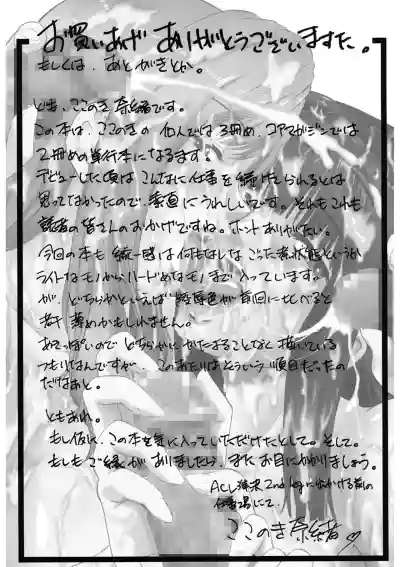 お買いあげ ありがとうございますた。
もしくは、あとがきとか。
ども、ここのき奈緒です。
この本は、ここのきの 個人では3冊め、コアマガジンでは
2冊めの単行本になるます。
デビューした頃はこんなに仕事を続けてられるとは
思ってなかったので、素直にうれしいです。それもこれも
読者の皆さんのおかげですね。ホントありがたい。
今回の本も 統一感は何もなしな ごった煮状態というか
ライトなモノからハードめなモノまで入っています。
が、どちらかといえば 陵辱色が前回に比べると
若干 薄めかもしれません。
あきっぽいので どちらかにかたよることなく 描いている
つもりなんですが、このあたりはどういう順目だったの
だけなあと。
ともあれ。
もし仮に、この本を気に入っていただけたとして。そして。
もしもご縁がありましたら、またお目にかかりましょう。
ACL 2nd Legに出かける前の
仕事場にて。
ここのき奈緒♡